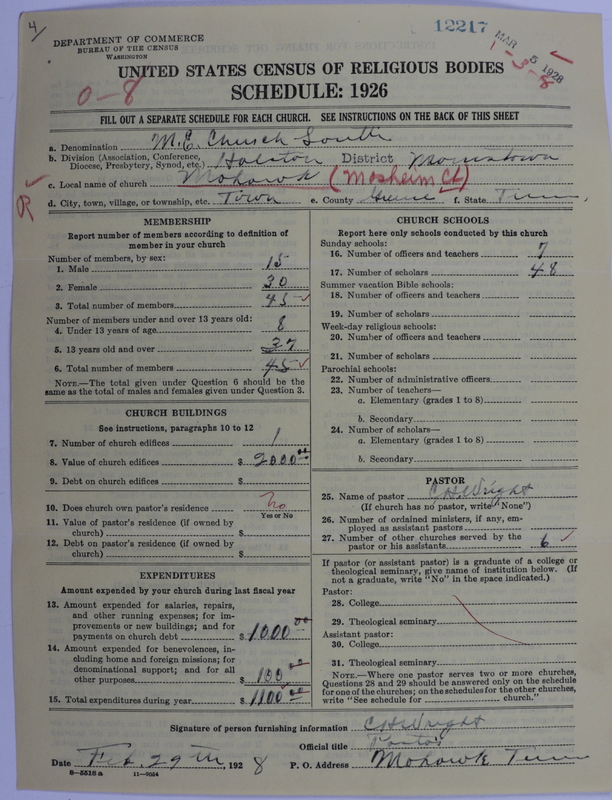 4
12217
MAR 5 1928
1-3-8
DEPARTMENT OF COMMERCE
BUREAU OF THE CENSUS
WASHINGTON
UNITED STATES CENSUS OF RELIGIOUS BODIES
0-8
SCHEDULE: 1926
FILL OUT A SEPARATE SCHEDULE FOR EACH CHURCH. SEE INSTRUCTIONS ON THE BACK OF THIS SHEET
a. Denomination M.E. Church South
b. Division (Association, Conference, Diocese, Presbytery, Synod, etc.) Holston District Morristown
c. Local name of church Mohawk (Mosheim Ct.)
R
d. City, town, village, or township, etc. Town e. County Greene f. State Tenn,
MEMBERSHIP
Report number of members according to definition of
member in your church
Number of members, by sex:
1. Male 15
2. Female 30
3. Total number of members 45
Number of members under and over 13 years old:
4. Under 13 years of age 8
5. 13 years old and over 37
6. Total number of members 45
NOTE.—The total given under Question 6 should be the
same as the total of males and females given under Question 3.
CHURCH BUILDINGS
See instructions, paragraphs 10 to 12
7. Number of church edifices 1
8. Value of church edifices $ 2000 00
9. Debt on church edifices $
10. Does church own pastor's residence No
Yes or No
11. Value of pastor's residence (if owned by
church) $
12. Debt on pastor's residence (if owned by
church) $
EXPENDITURES
Amount expended by your church during last fiscal year
13. Amount expended for salaries, repairs,
and other running expenses; for im-
provements or new buildings; and for
payments on church debt $ 1000 00
14. Amount expended for benevolences, in-
cluding home and foreign missions; for
denominational support; and for all
other purposes $ 100 00
15. Total expenditures during year $ 1100 00
CHURCH SCHOOLS
Report here only schools conducted by this church
Sunday schools:
16. Number of officers and teachers 7
17. Number of scholars 48
Summer vacation Bible schools:
18. Number of officers and teachers
19. Number of scholars
Week-day religious schools:
20. Number of officers and teachers
21. Number of scholars
Parochial schools:
22. Number of administrative officers
23. Number of teachers—
a. Elementary (grades 1 to 8)
b. Secondary
24. Number of scholars—
a. Elementary (grades 1 to 8)
b. Secondary
PASTOR
25. Name of pastor C H Wright
(If church has no pastor, write "None")
26. Number of ordained ministers, if any, em-
ployed as assistant pastors
27. Number of other churches served by the
pastor or his assistants 6
If pastor (or assistant pastor) is a graduate of a college or
theological seminary, give name of institution below. (If
not a graduate, write "No" in the space indicated.)
Pastor:
28. College
29. Theological seminary
Assistant pastor:
30. College
31. Theological seminary
NOTE.—Where one pastor serves two or more churches,
Questions 28 and 29 should be answered only on the schedule
for one of the churches; on the schedules for the other churches,
write "See schedule for church."
Signature of person furnishing information C H Wright
Official title Pastor
Date Feb. 29th, 1928 P. O. Address Mohawk Tenn
8-5518 a 11-9054